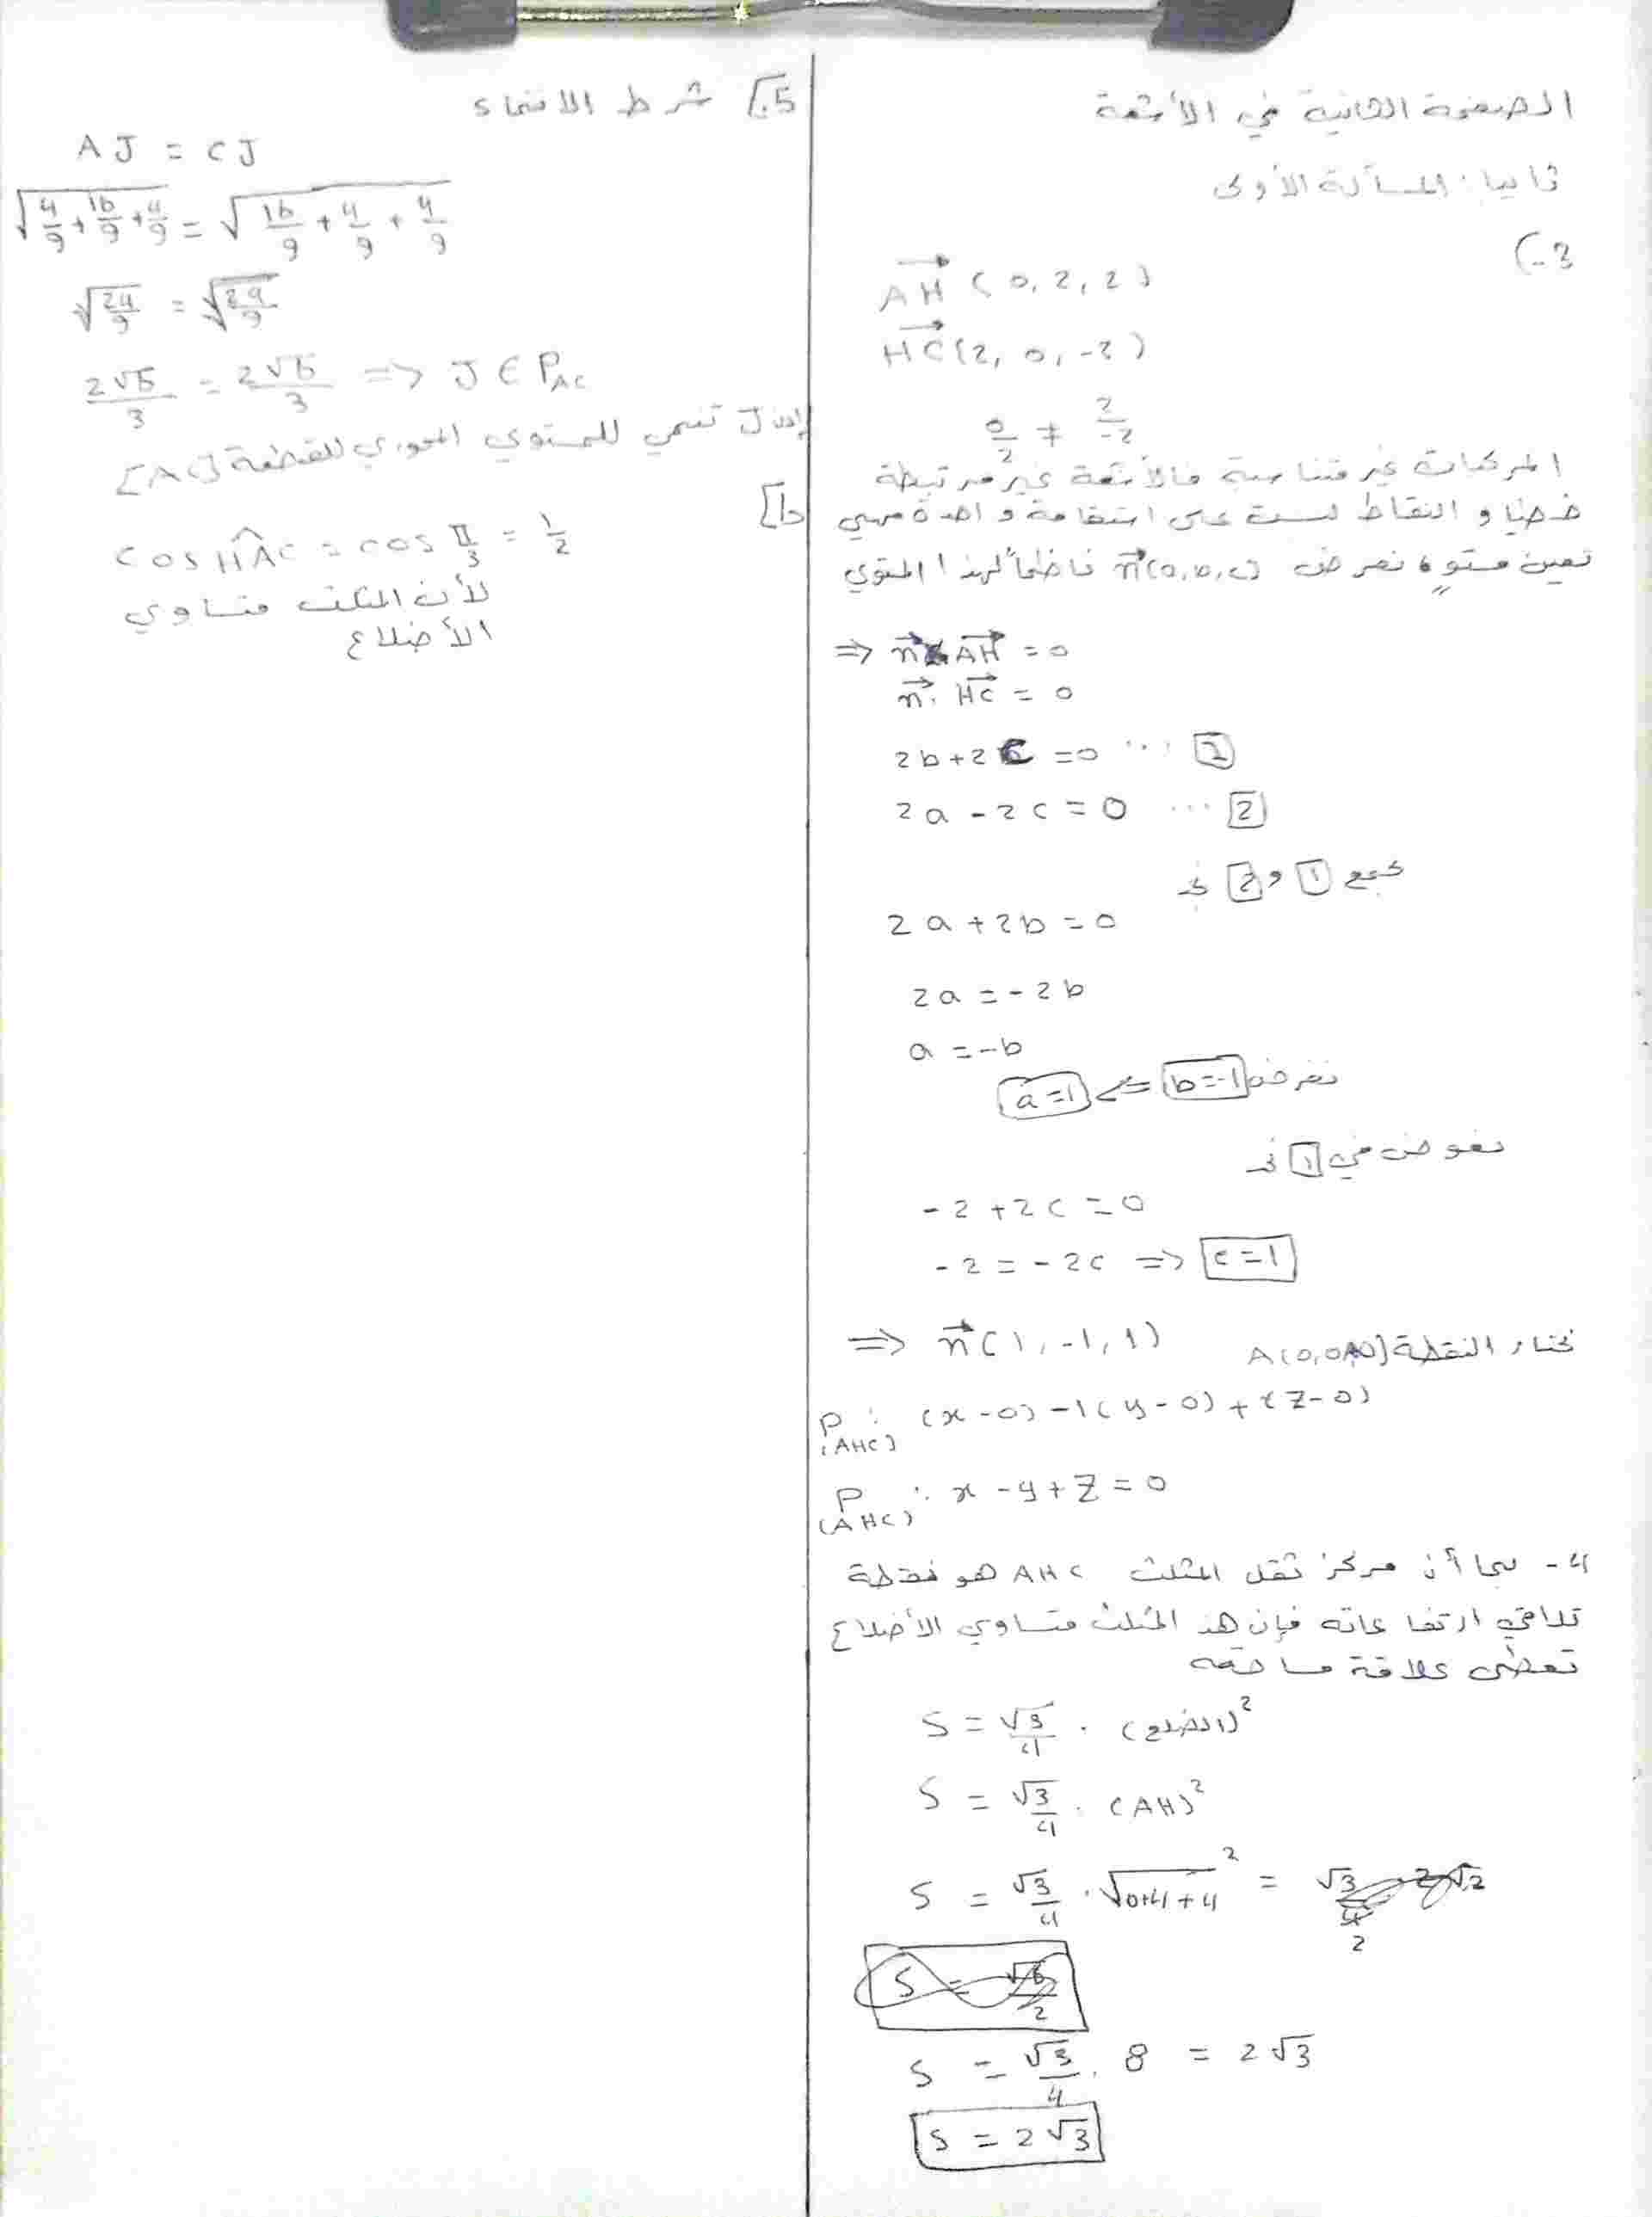 الصفحة الثانية في الأشعة
ثانيا: المسألة الأولى
3-)
AH (0, 2, 2)
HC (2, 0, -2)
0/2 ≠ 2/-2
المركبات غير متناسبة فالأشعة غير مرتبطة
خطيا و النقاط ليست على استقامة واحدة فهي
تعين مستوٍ، نفرض n(a,b,c) ناظماً لهذا المستوي
⇒ n . AH = 0
n . HC = 0
2b + 2c = 0 ... [1]
2a - 2c = 0 ... [2]
نجمع [1] و [2] نجد
2a + 2b = 0
2a = -2b
a = -b
نفرض b = -1 => a = 1
نعوض في [1] نجد
-2 + 2c = 0
-2 = -2c => c = 1
=> n (1, -1, 1) نختار النقطة A(0,0,0)
P(AHC) : (x-0) -1(y-0) + (z-0)
P(AHC) : x - y + z = 0
4- بما أن مركز ثقل المثلث AHC هو نقطة
تلاقي ارتفاعاته فإن هذ المثلث متساوي الأضلاع
تعطى علاقة مساحته
S = √3/4 . (الضلع)²
S = √3/4 . (AH)²
S = √3/4 . √(0+4+4)² =
S = √3/4 . 8 = 2√3
S = 2√3
5.] شرط الانتماء
AJ = CJ
√(4/9 + 16/9 + 4/9) = √(16/9 + 4/9 + 4/9)
√(24/9) = √(24/9)
2√6/3 = 2√6/3 => J ∈ P AC
إذن J تنتمي للمستوي المحوري للقطعة [AC]
cos HAC = cos π/3 = 1/2
لأن المثلث متساوي
الأضلاع